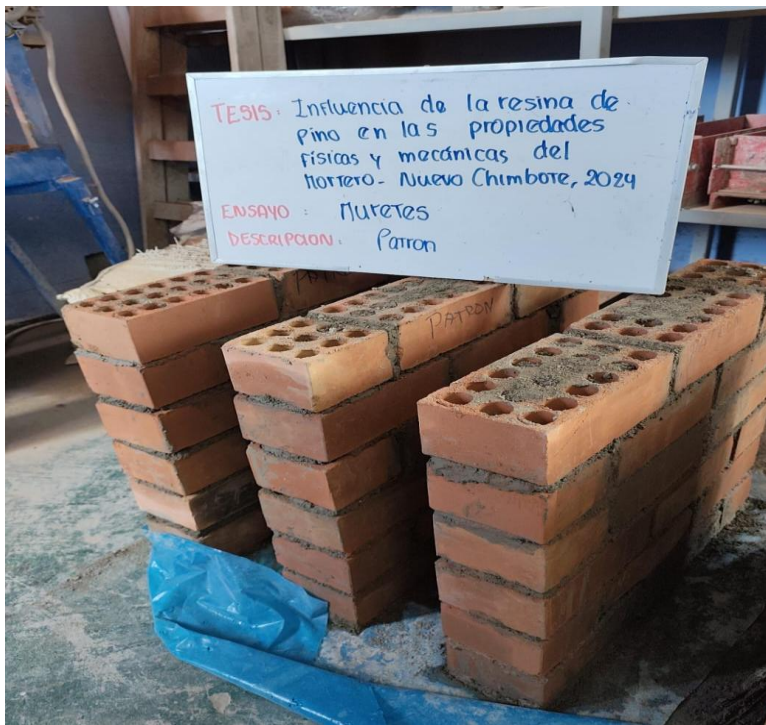 TESIS: Influencia de la resina de
pino en las propiedades
físicas y mecánicas del
Mortero- Nuevo Chimbote, 2024
ENSAYO : Muretes
DESCRIPCION: Patron
PATRON